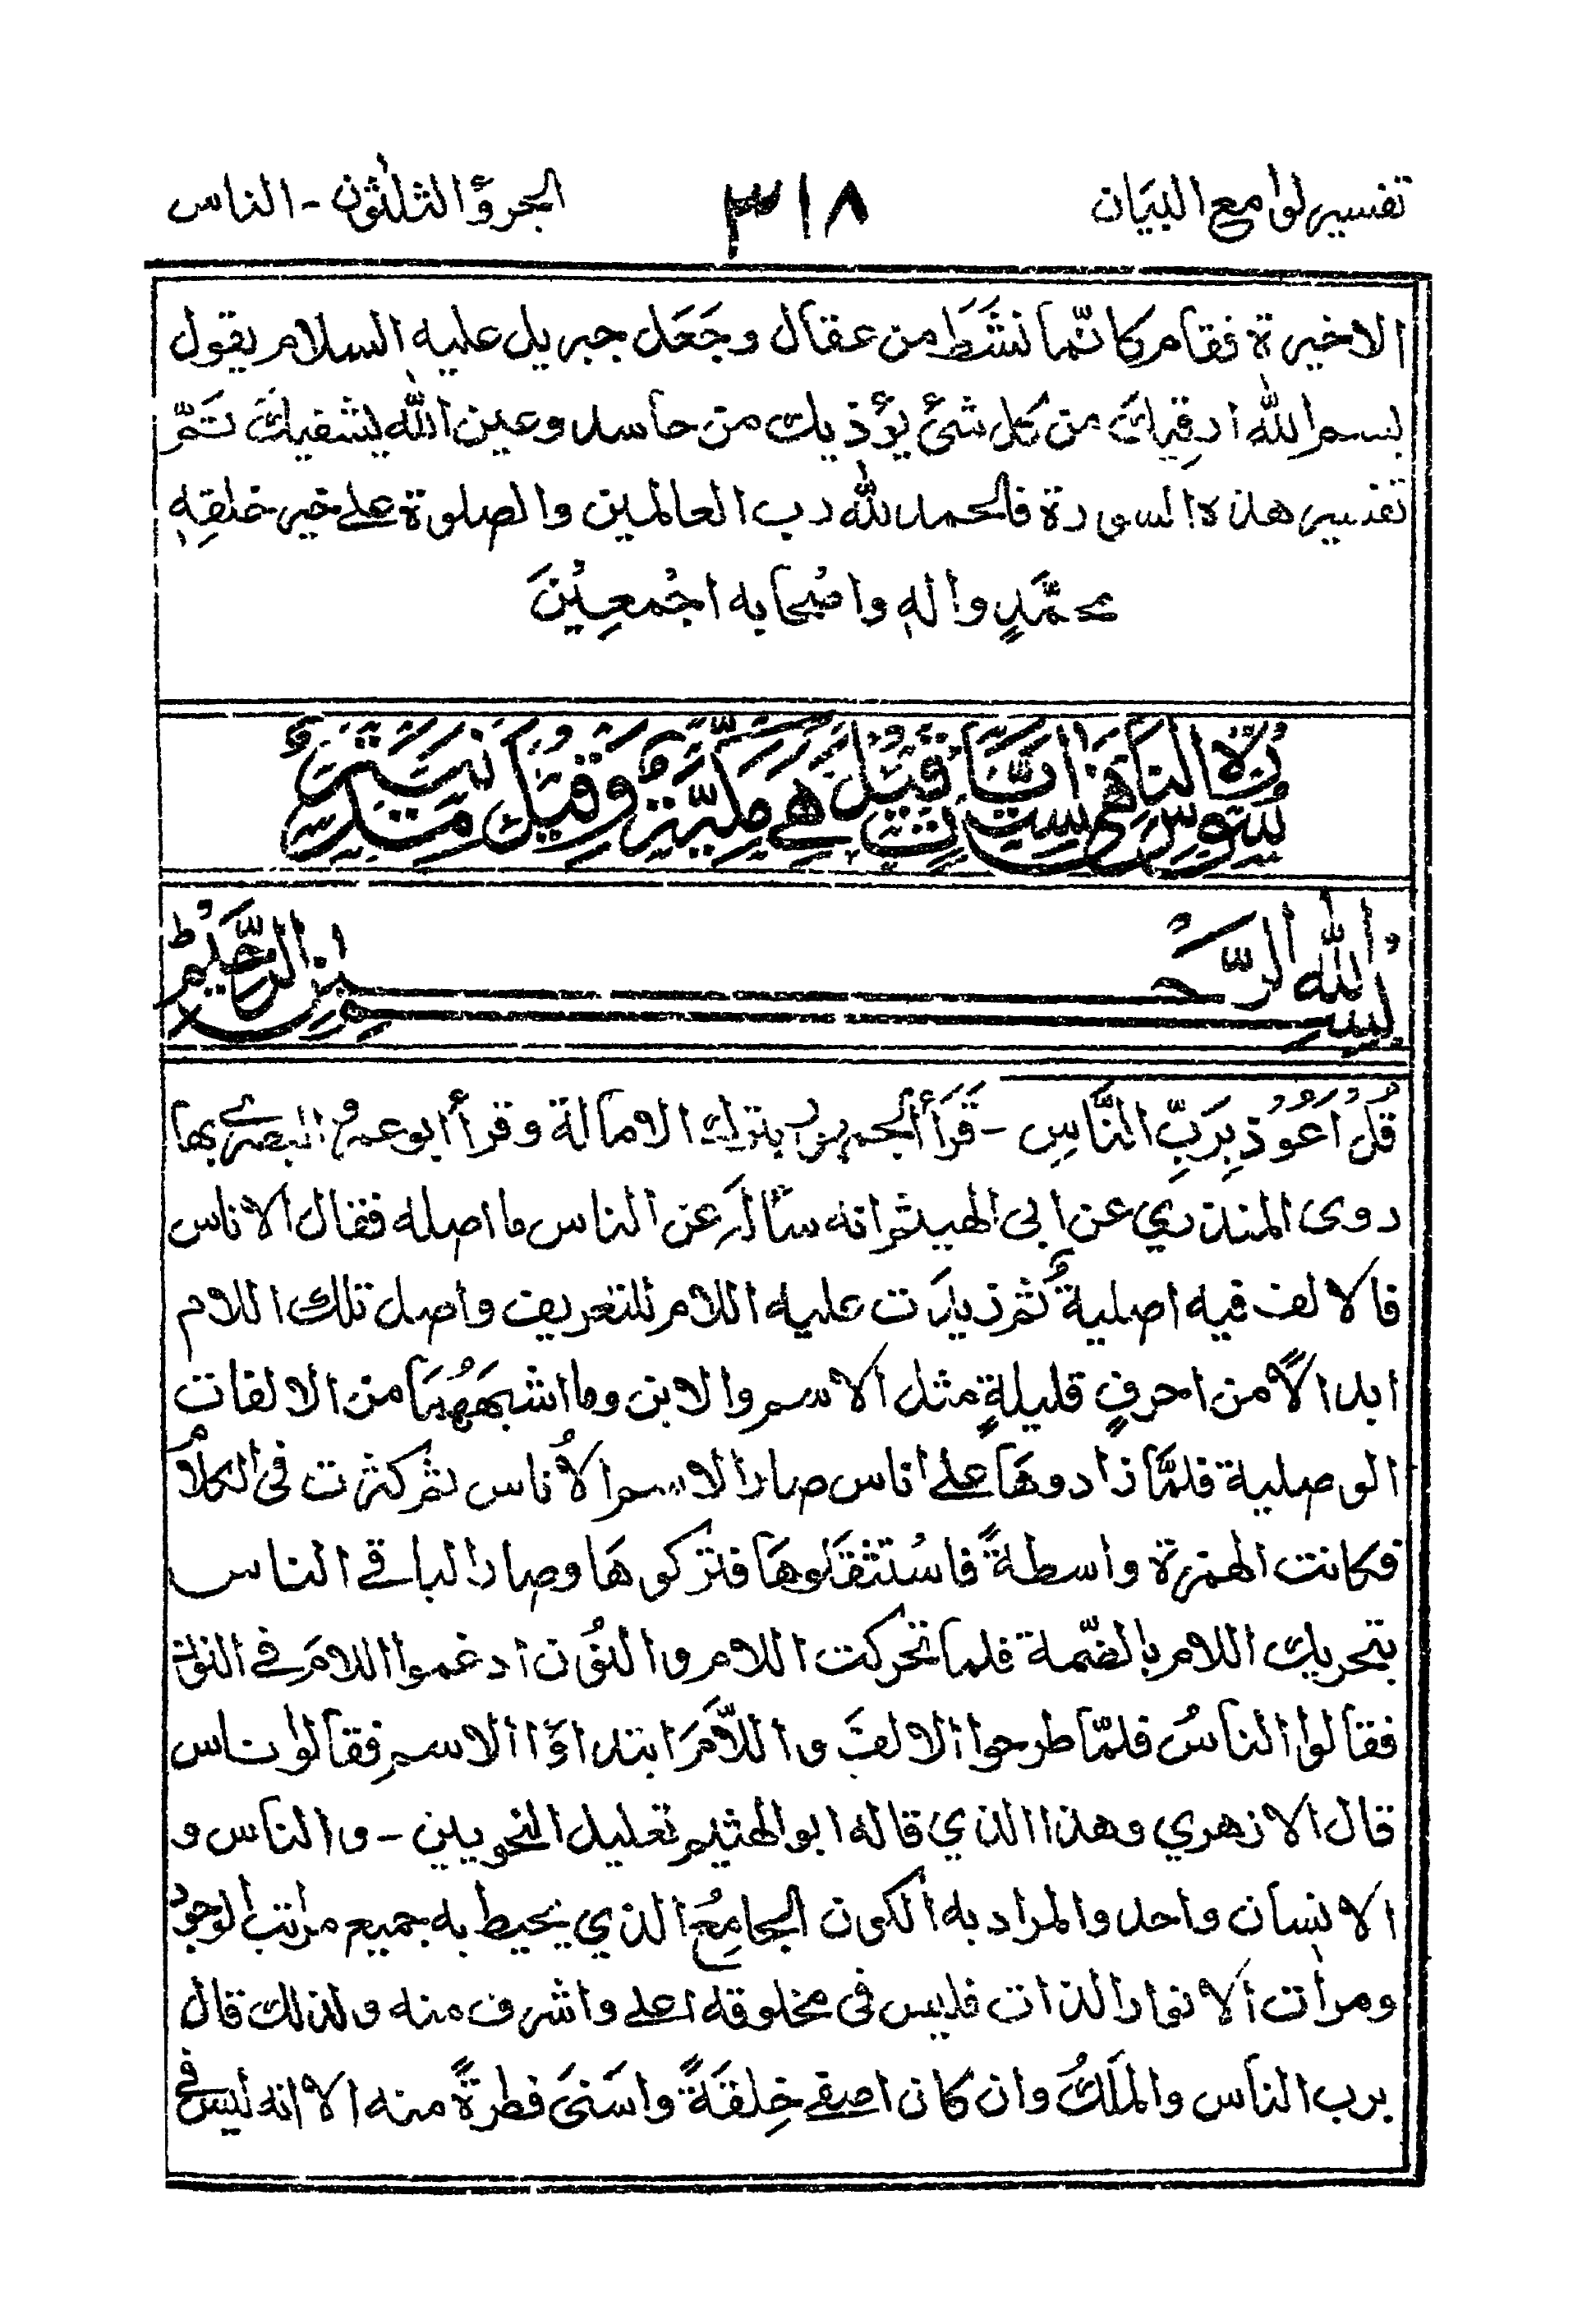 تفسير لوامع البيَان ٣١٨ الجزؤ الثلٰثون - الناس
الاخيرة فقام كانّما نشَطَ من عقال وجَعَل جبريل عليه السلام يقول
بسم اللّٰه ارقِيكَ من كل شئ يؤذيك من حاسد وعين اللّٰه يشفيكَ تَمّ
تفسير هذه السورة فالحمد للّٰه رب العالمين والصلوة علے خير خلقِهٖ
محمَّدٍ واٰلهٖ واصْحابه اجْمعِيْنَ
سُوْرَةُ النَّاسِ هِيَ سِتُّ اٰيَاتٍ قِيْلَ هِيَ مَكِّيَّةٌ وَقِيْلَ مَدَنِيَّةٌ
بِسْمِ اللّٰهِ الرَّحْمٰنِ الرَّحِيْمِ
قُلْ اَعُوْذُ بِرَبِّ النَّاسِ - قَرَأَ الجمهور بترك الامالة وقرأ ابو عمرو البصرے بها
روى المنذري عن ابى الهيثم انه سألَه عن الناس ما اصله فقال الاناس
فالالف فيه اصليةٌ ثم زيدَت عليه اللام للتعريف واصل تلك اللام
ابدالاً من احرفٍ قليلةٍ مثل الاسم والابن وما اشبهَهُمَا من الالفات
الوصلية فلمَّا زادوهَا علے اناس صار الاسم الاُناس ثم كثرت فى الكلام
فكانت الهمزة واسطةً فاسْتثقَلوهَا فتركوهَا وصار الباقے الناس
بتحريك اللام بالضّمة فلما تحركت اللام والنُون ادغموا اللامَ فے النون
فقالوا النّاسُ فلمّا طرحوا الالفَ واللاَّمَ ابتداؤا الاسم فقالوا ناس
قال الازهري وهذا الذي قاله ابو الهثيم تعليل النحويين - والناس و
الانسان واحد والمراد به الكون الجامِعُ الذي يحيط به جميع مراتب الوجود
ومراٰت الانوار الذات فليس فى مخلوقه اعلے واشرف منه ولذلك قال
برب الناس والملَكُ وان كان اصفے خِلقَةً واسَنىَ فطرةً منه الا انه ليس فے